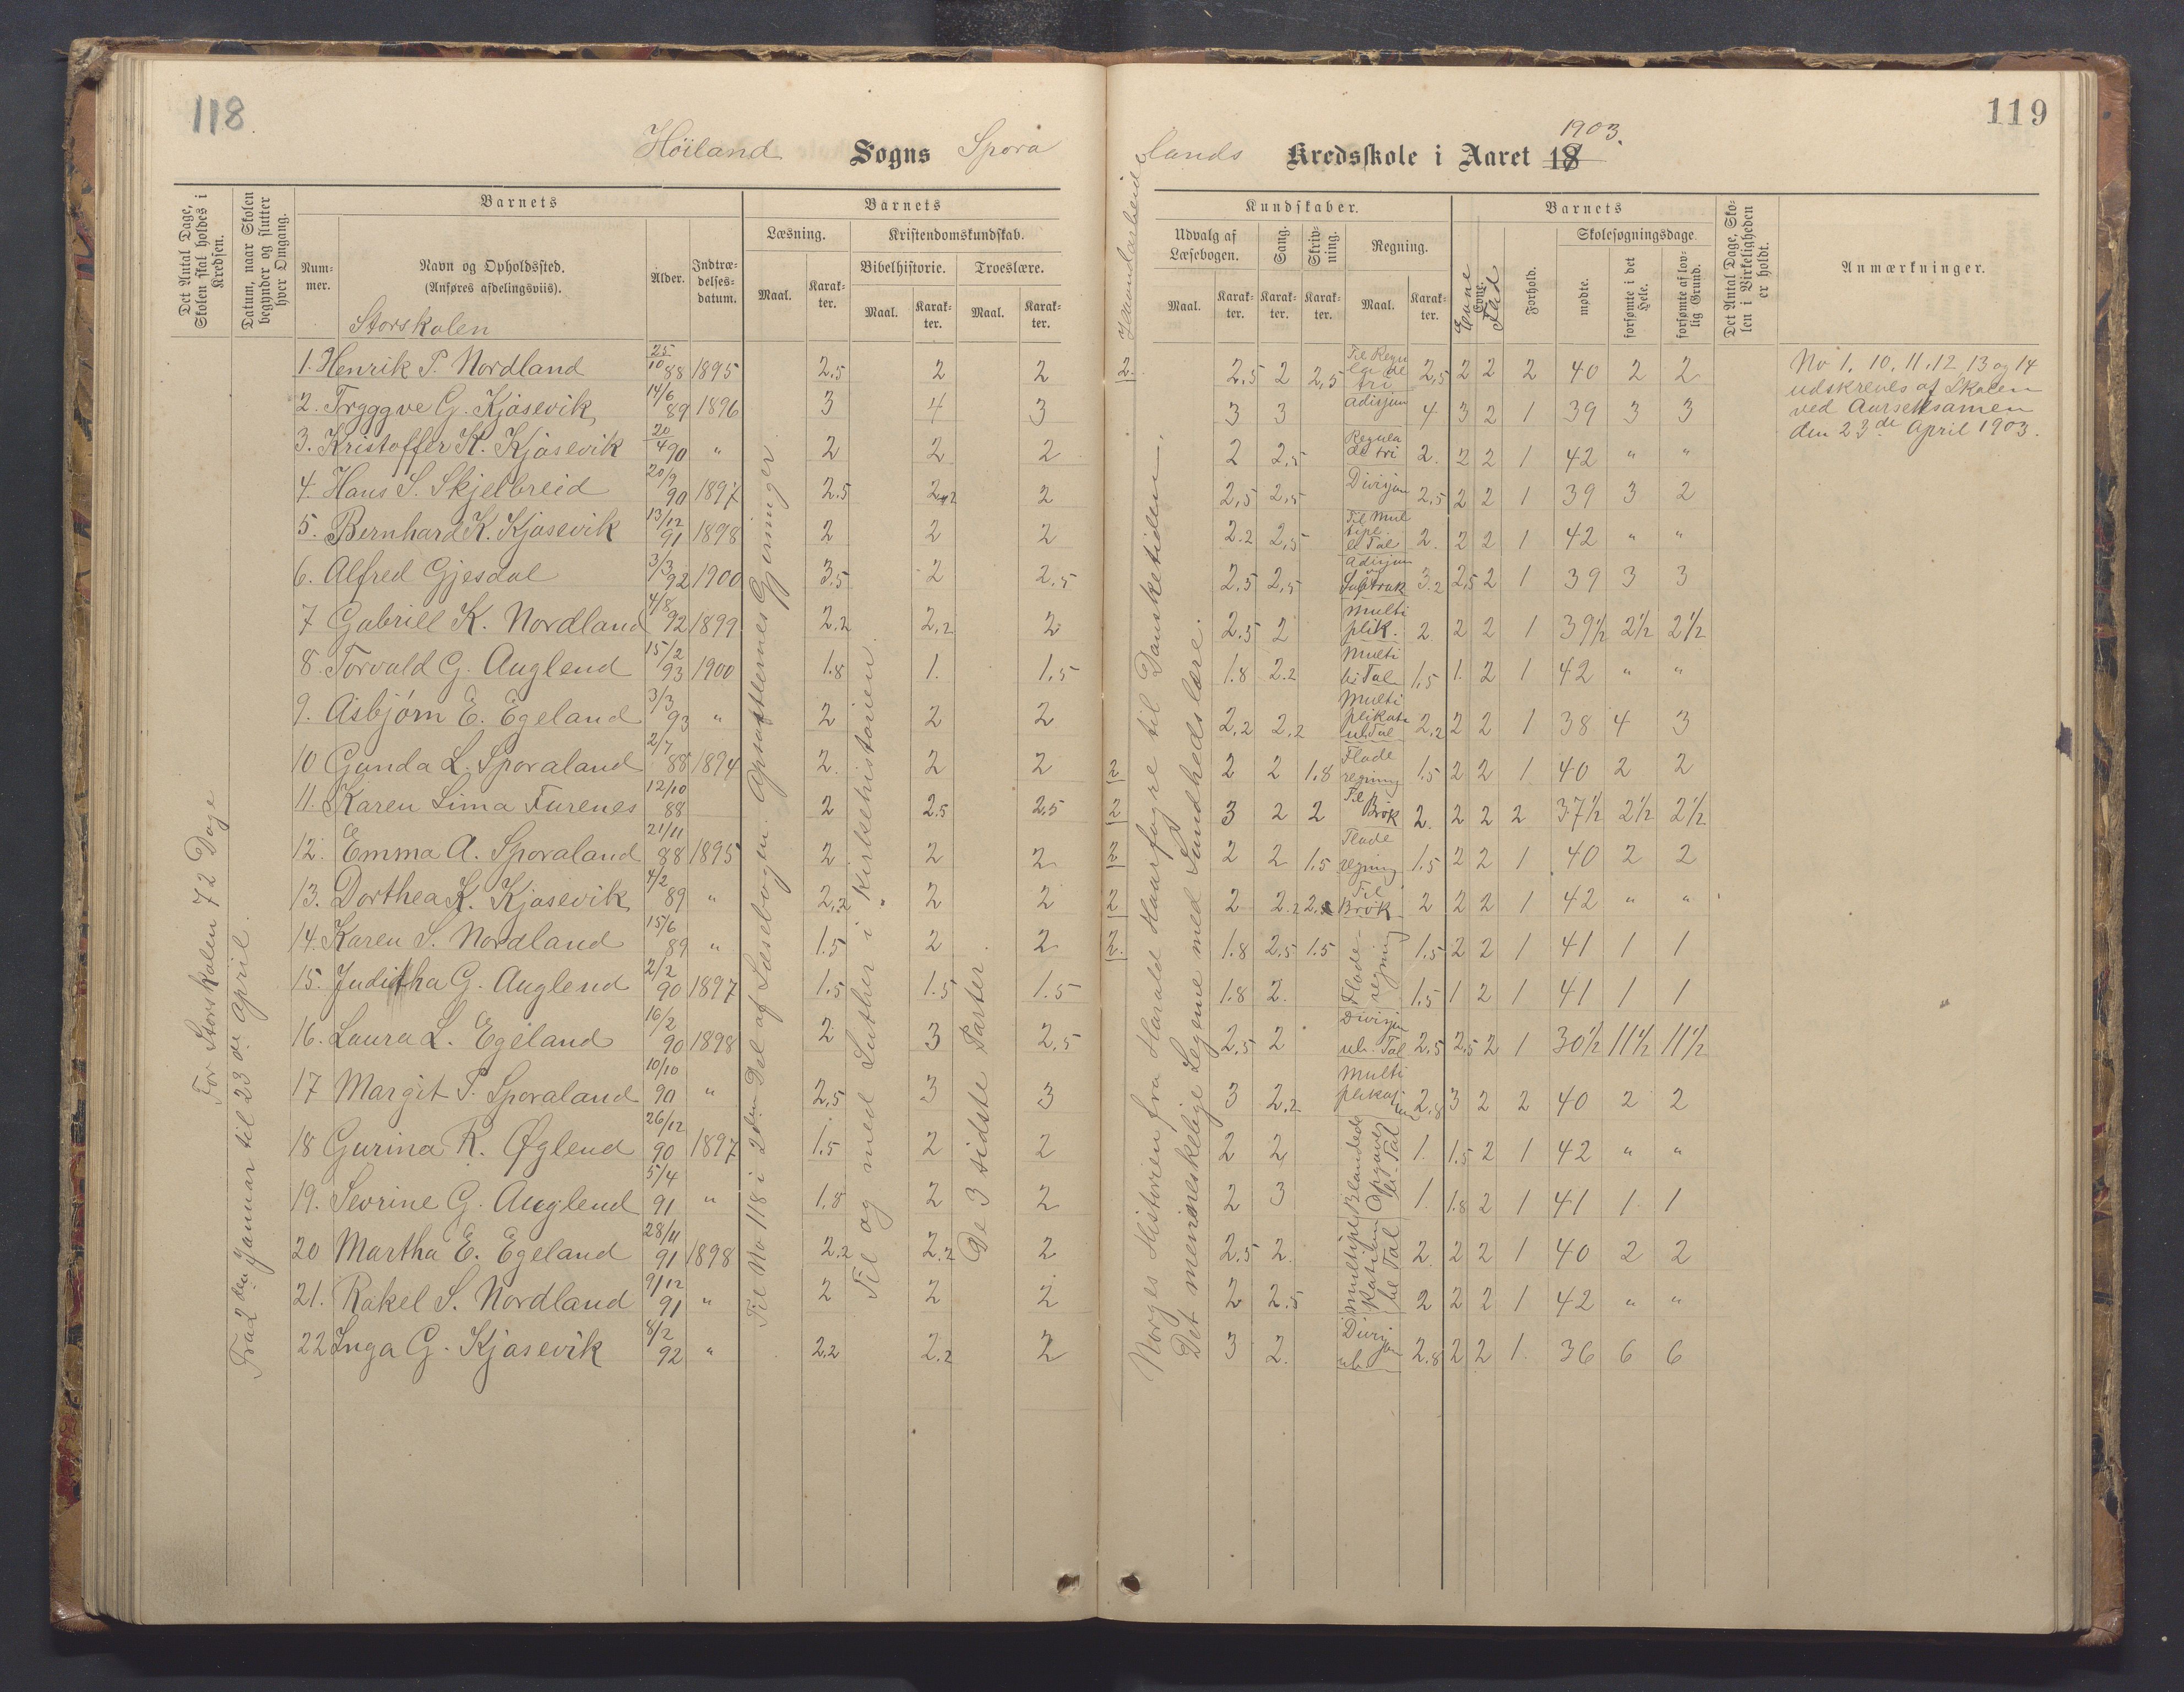 118
119
Höiland Sogns Spora
lands Kredsskole i Aaret 18 1903.
Det Antal Dage, Skolen skal holdes i Kredsen.
Datum, naar Skolen begynder og slutter hver Omgang.
Barnets
Num-mer.
Navn og Opholdssted.
(Anføres afdelingsviis).
Alder.
Indtræ-delses-datum.
Barnets
Læsning.
Kristendomskundskab.
Bibelhistorie.
Troeslære.
Maal. Karak-ter. Maal. Karak-ter. Maal. Karak-ter.
Haandarbeide
Kundskaber.
Udvalg af Læsebogen.
Sang.
Skriv-ning.
Regning.
Maal. Karak-ter. Karak-ter. Karak-ter. Maal. Karak-ter.
Barnets
Evne. Evne Flid
Forhold.
Skolesøgningsdage.
mødte.
forsømte i det Hele.
forsømte af lov-lig Grund.
Det Antal Dage, Sko-len i Virkeligheden er holdt.
Anmærkninger.
Storskolen
1. Henrik P. Nordland 25/10 88 1895 2,5 2 2 2. 2,5 2 2,5 Til Regula de tri 2,5 2 2 2 40 2 2
2. Trygggve G. Kjosevik 14/6 89 1896 3 4 3 3 3 Adisjon 4 3 2 1 39 3 3
3. Kristoffer K. Kjosevik 20/4 90 " 2 2 2 2 2,5 Regula de tri 2. 2 2 1 42 " "
4. Hans S. Skjelbreid 20/9 90 1897 2.5 2,2 2 2,5 2,5 Divisjon 2,5 2 2 1 39 3 2
5. Bernhard K. Kjosevik 13/12 91 1898 2 2 2 2.2 2,5 Til Multipl. el Tal 2. 2 2 1 42 " "
6. Alfred Gjesdal 3/3 92 1900 3.5 2 2,5 2,5 2,5 Adisjon og Subtrak 3.2 2,5 2 1 39 3 3
7 Gabriell K. Nordland 4/8 92 1899 2.2 2,2 2 2,5 2 Multiplik. 2 2 2 1 39½ 2½ 2½
8. Torvald G. Auglend 15/2 93 1900 1.8 1. 1,5 1.8 2.2 Multi be Tal 1,5 1. 2 1 42 " "
9. Asbjørn E. Egeland 3/3 93 " 2 2 2 2,2 2,2 Multiplikats ub Tal 2.2 2 2 1 38 4 3
10 Gunda L. Sporaland 2/7 88 1894 2. 2 2 2 2 2 1.8 Flade regning 1.5 2 2 1 40 2 2
11. Karen Lima Furenes 12/10 88 2 2.5 2,5 2 3 2 2 Til Brøk 2. 2 2 2 37½ 2½ 2½
12. Emma A. Sporaland 21/11 88 1895 2 2 2 2 2 2 1.5 Flade regning 1.5 2 2 1 40 2 2
13. Dorthea K. Kjosevik 4/2 89 " 2,2 2 2 2 2 2.2 Til Brøk 2 2 2 1 42 " "
14. Karen S. Nordland 15/6 89 " 1.5 2 2 2. 1.8 2.5 1.5 Flade-regning 1.5 2 2 1 41 1 1
15. Juditha G. Auglend 2/2 90 1897 1.5 1.5 1.5 1.8 2. 1.5 1 2 1 41 1 1
16. Laura L. Egeland 16/2 90 1898 2 3 2,5 2,5 2 Divisjon ub. Tal 2.5 2,5 2 1 30½ 11½ 11½
17 Margit P. Sporaland 10/10 90 " 2,5 3 3 3 2,2 Multiplikasj 2,8 3 2 2 40 2 2
18 Gurina R. Øglend 26/12 90 1897 1.5 2 2 2 2 Blandede Opgaver be. Tal 1. 1.5 2 1 42 " "
19. Sevrine G. Auglend 5/4 91 " 1,8 2 2 2 3 1. 1.8 2 1 41 1 1
20 Martha E. Egeland 28/11 91 1898 2.2 2.2 2 2.5 2. Multiplikation be Tal 2. 2 2 1 40 2 2
21. Rakel S. Nordland 9/12 91 " 2 2 2 2 2.5 2 2 2 1 42 " "
22 Inga G. Kjosevik 8/2 92 " 2.2 2.2 2 3 2. Divisjon ub. 2.8 2 2 1. 36 6 6
For Storskolen 72 Dage
Fra 2den Januar til 23de April.
Til No 118 i 2den Del af Læsebogen. Apostlernes Gjerninger
Til og med Luther i Kirkehistorien
De 3 sidste Parter
Norges Historien fra Harald Haarfagre til Dansketiden.
Det menneskelige Legeme med Sundhedslære.
No 1, 10, 11, 12, 13 og 14
udskreves af Skolen
ved Aarseksamen
den 23de April 1903.